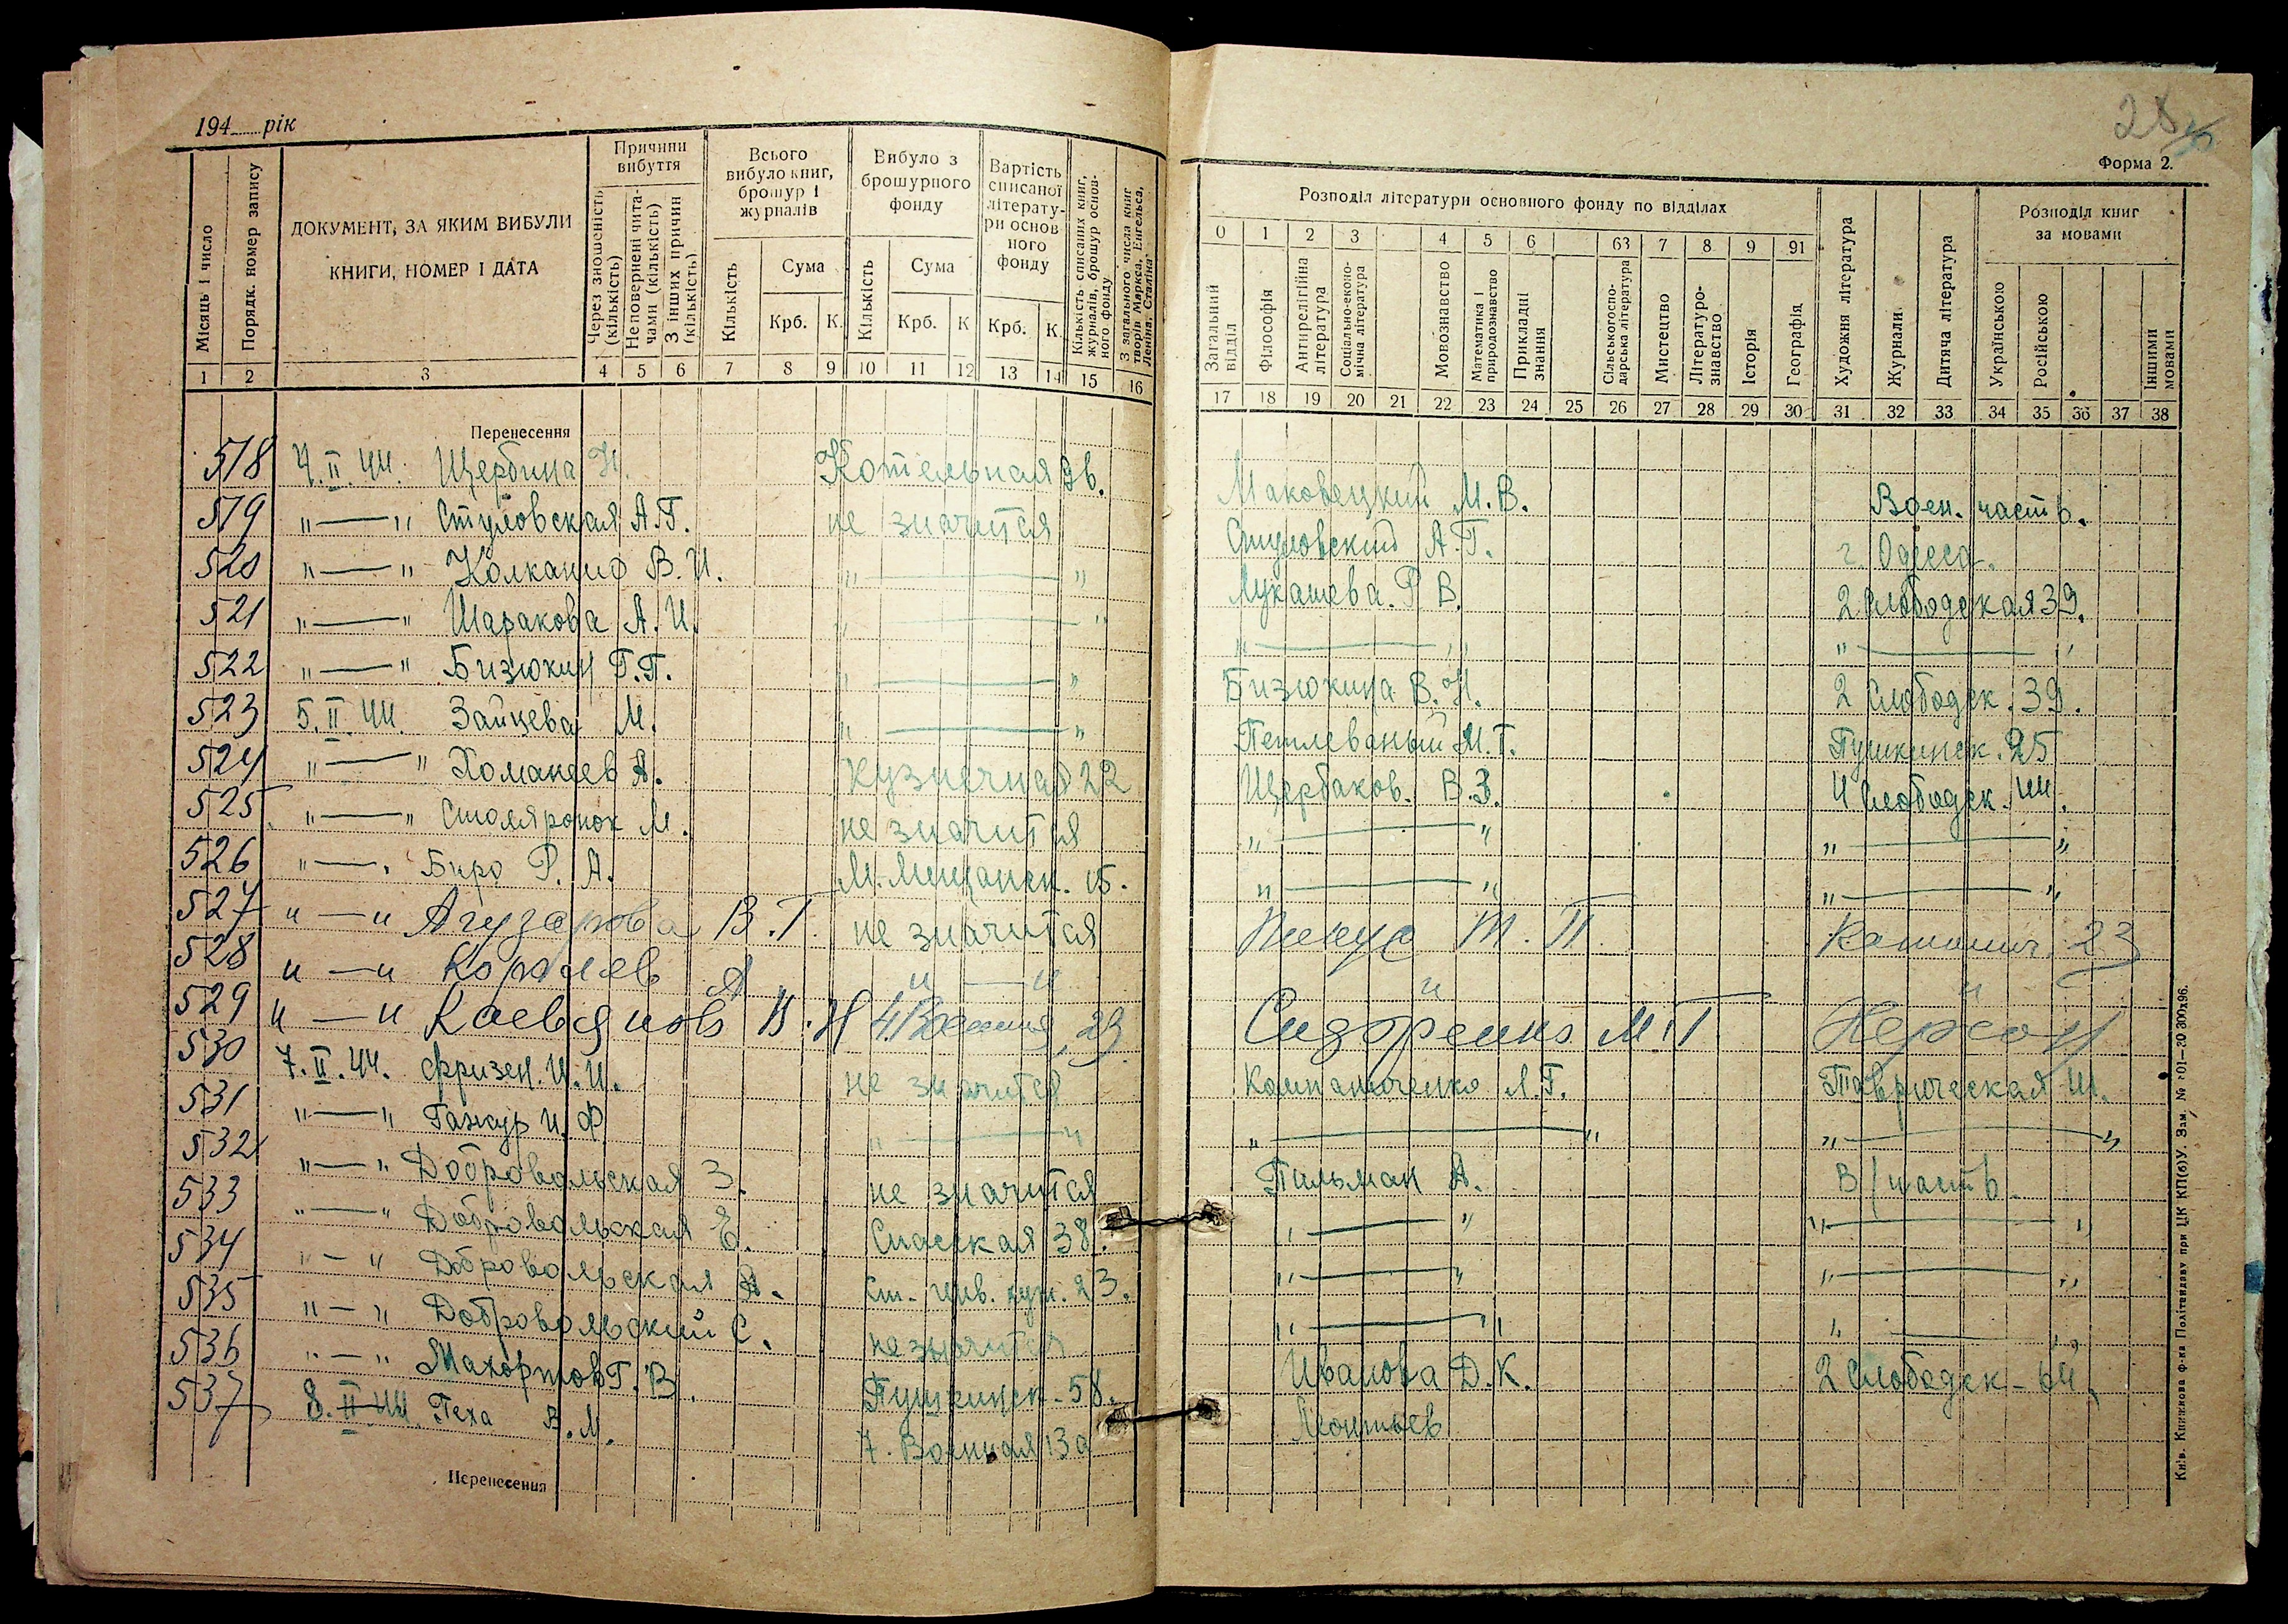 194 рік
28
Форма 2.
Місяць і число
Порядк. номер запису
ДОКУМЕНТ, ЗА ЯКИМ ВИБУЛИ КНИГИ, НОМЕР І ДАТА
Причини вибуття
Через зношеність (кількість)
Неповернені читачами (кількість)
З інших причин (кількість)
Всього вибуло книг, брошур і журналів
Кількість
Сума
Крб. К.
Вибуло з брошурного фонду
Кількість
Сума
Крб. К
Вартість списаної літератури основного фонду
Крб. К.
Кількість списаних книг, журналів, брошур основного фонду
З загального числа книг творів Маркса, Енгельса, Леніна, Сталіна
1 2 3 4 5 6 7 8 9 10 11 12 13 14 15 16
Розподіл літератури основного фонду по відділах
0 1 2 3 4 5 6 63 7 8 9 91
Загальний відділ
Філософія
Антирелігійна література
Соціально-економічна література
Мовознавство
Математика і природознавство
Прикладні знання
Сільськогосподарська література
Мистецтво
Літературознавство
Історія
Географія
Художня література
Журнали.
Дитяча література
Розподіл книг за мовами
Українською
Російською
Іншими мовами
17 18 19 20 21 22 23 24 25 26 27 28 29 30 31 32 33 34 35 36 37 38
Перенесення
518 4.II.44. Щербина Н. Котельная 9в. Маковецкий М.В. Воен. часть.
519 " — " Ступовская А.Г. не значится Ступовский А.Г. г. Одесса.
520 " — " Колканид В.И. " — " Лукашева. Р В. 2 Слободская 39.
521 " — " Шаракова А.И. " — " " — " " — "
522 " — " Бизюкин Г.П. " — " Бизюкина В.Н. 2 Слободск. 39.
523 5.II.44. Зайцева М. " — " Петлеваный М.Т. Пушкинск. 25
524 " — " Хоманеев А. Кузнечная 22 Щербаков. В.З. 4 Слободск. 44.
525 " — " Столяронок М. не значится " — " " — "
526 " — " Биро Р. А. М. Мещанск. 15. " — " " — "
527 " — " Агузарова В.Г. не значится Т. П. 23
528 " — " Королев А " — " " "
529 " — " В.Н 4 Военная, 29 Сидоренко М.Г Херсон
530 7.II.44. Фризен. И.И. не значится Компаниченко Л.Г. Таврическая
531 " — " Ганжур И.Ф. " — " " — " " — "
532 " — " Добровольская З. не значится Пильман А. В/часть.
533 " — " Добровольская Е. Спасская 38. " — " " — "
534 " — " Добровольская А. 23. " — " " — "
535 " — " Добровольский С. не значится " — " " — "
536 " — " Махортов Г.В. Пушкинск. 58. Иванова Д.К. 2 Слободск - 64
537 8.II.44 Геха В.М. 7. Военная 13а Леонтьев
Перенесення
Київ. Книжкова ф-ка Політвидаву при ЦК КП(б)У. Зам. № 201—20 300х96.